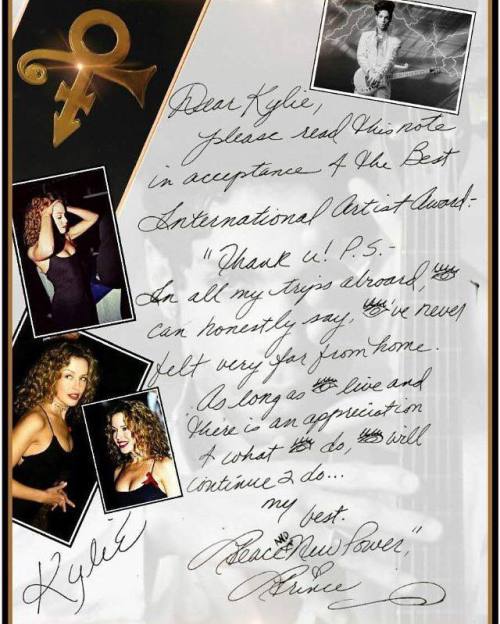 Dear Kylie,
please read this note
in acceptance 4 the Best
International Artist Award:-
"Thank u! P.S.-
In all my trips abroad, 👁
can honestly say, 👁've never
felt very far from home.
As long as 👁 live and
there is an appreciation
4 what 👁 do, 👁 will
continue 2 do...
my best.
Peace AND New Power",
Prince
Kylie